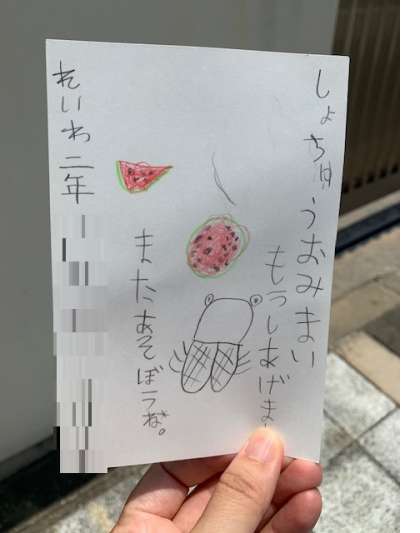 しょちゅうおみまい
もうしあげま
またあそぼうな。
れいわ二年